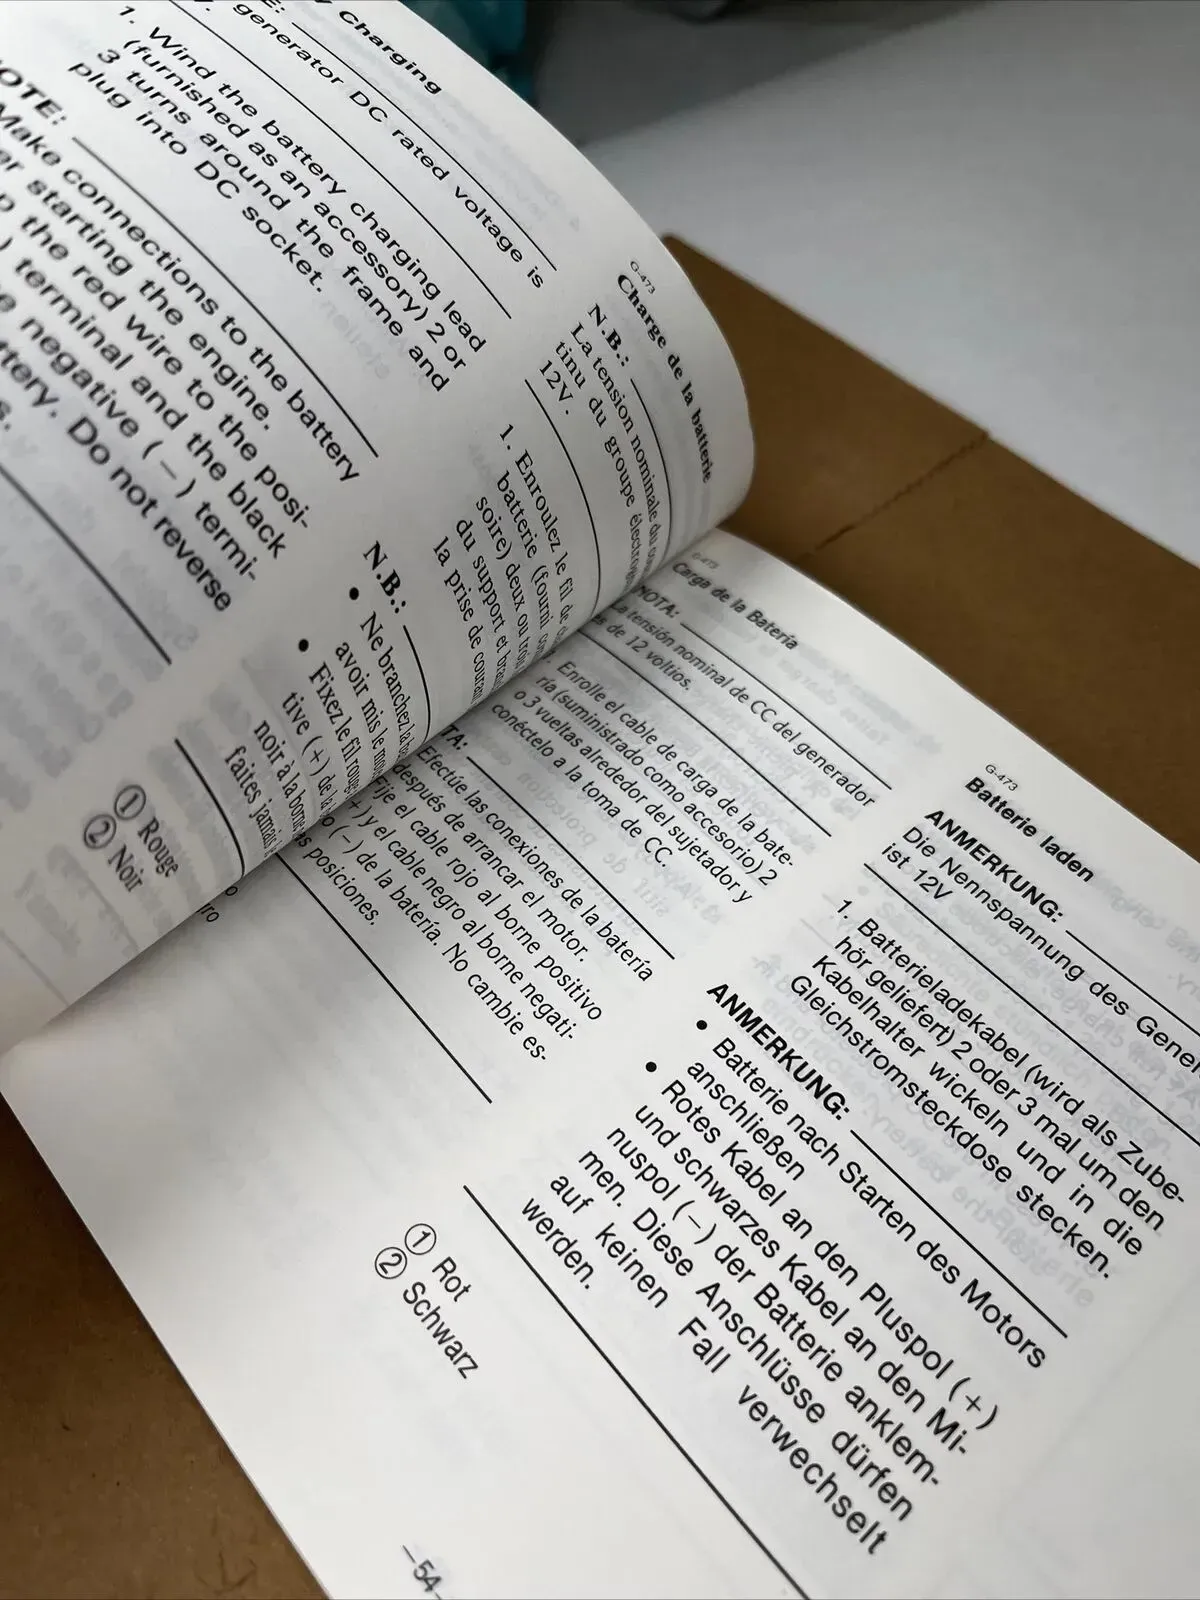 Charging
generator DC rated voltage is
1. Wind the battery charging lead
(furnished as an accessory) 2 or
3 turns around the frame and
plug into DC socket.
Make connections to the battery
starting the engine.
the red wire to the posi-
) terminal and the black
negative ( − ) termi-
Do not reverse
G-473
Charge de la batterie
N.B.:
La tension nominale du
tinu du groupe
12V.
1. Enroulez le fil de
batterie (fourni
soire) deux ou
du support et
la prise de
N.B.:
• Ne branchez
avoir mis le
• Fixez le fil
tive ( + ) de
noir à la
faites jamais
① Rouge
② Noir
G-473
Carga de la Batería
NOTA:
La tensión nominal de CC del generador
de 12 voltios.
Enrolle el cable de carga de la bate-
ría (suministrado como accesorio) 2
o 3 vueltas alrededor del sujetador y
conéctelo a la toma de CC.
Efectúe las conexiones de la batería
después de arrancar el motor.
el cable rojo al borne positivo
y el cable negro al borne negati-
(−) de la batería. No cambie es-
posiciones.
G-473
Batterie laden
ANMERKUNG:
Die Nennspannung des
ist 12V
1. Batterieladekabel (wird als Zube-
hör geliefert) 2 oder 3 mal um den
Kabelhalter wickeln und in die
Gleichstromsteckdose stecken.
ANMERKUNG:
• Batterie nach Starten des Motors
anschließen
• Rotes Kabel an den Pluspol ( + )
und schwarzes Kabel an den Mi-
nuspol ( − ) der Batterie anklem-
men. Diese Anschlüsse dürfen
auf keinen Fall verwechselt
werden.
① Rot
② Schwarz
–54–